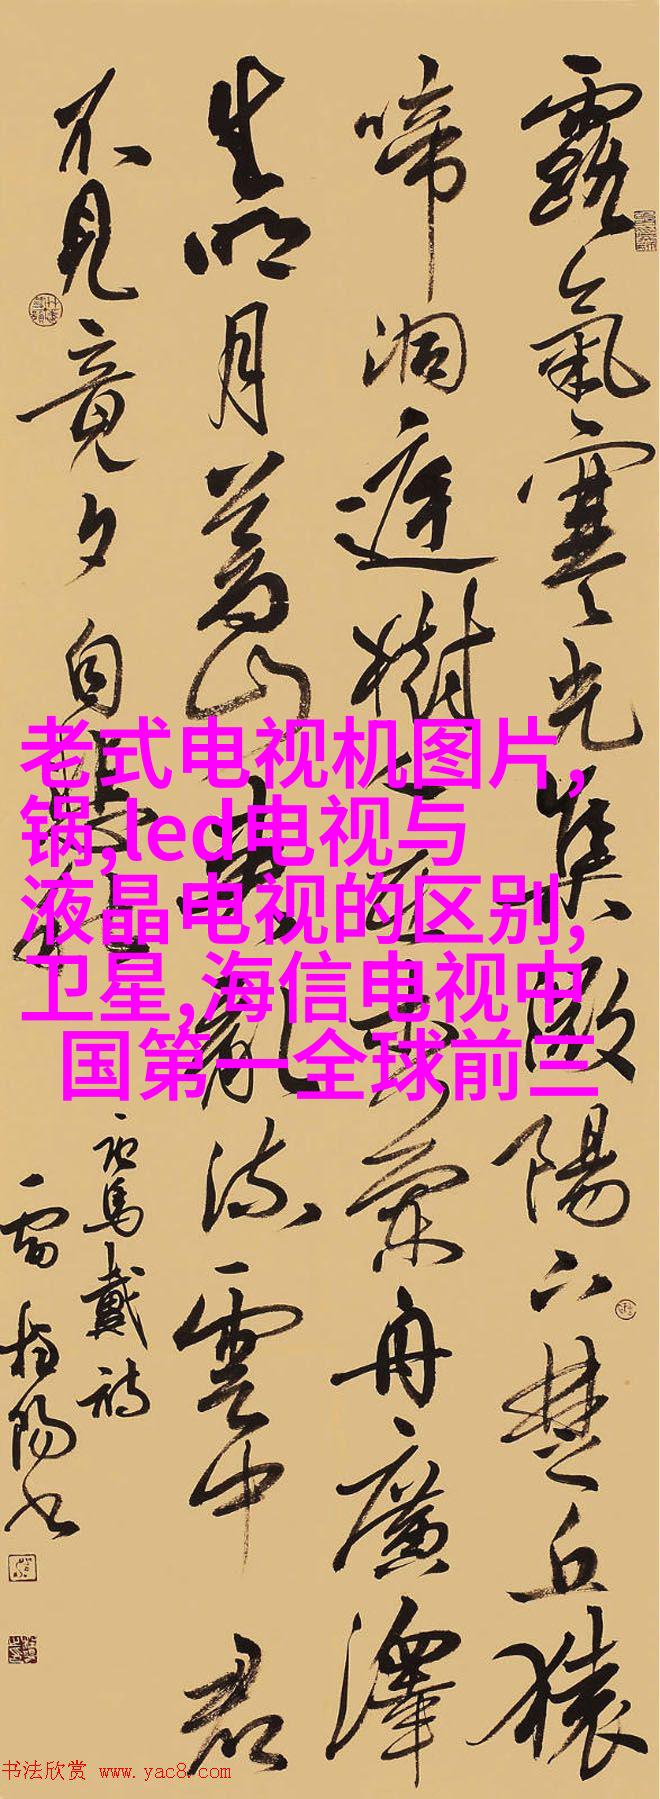 露氣寒光集微陽下楚丘猿
啼洞庭樹人在木蘭舟廣澤
生明月蒼山夾亂流雲中君
不見竟夕自悲秋
馬戴詩
雷
陽书
老式电视机图片,
锅,led电视与
液晶电视的区别,
卫星,海信电视中
国第一全球前三
书法欣赏 www.yac8.com